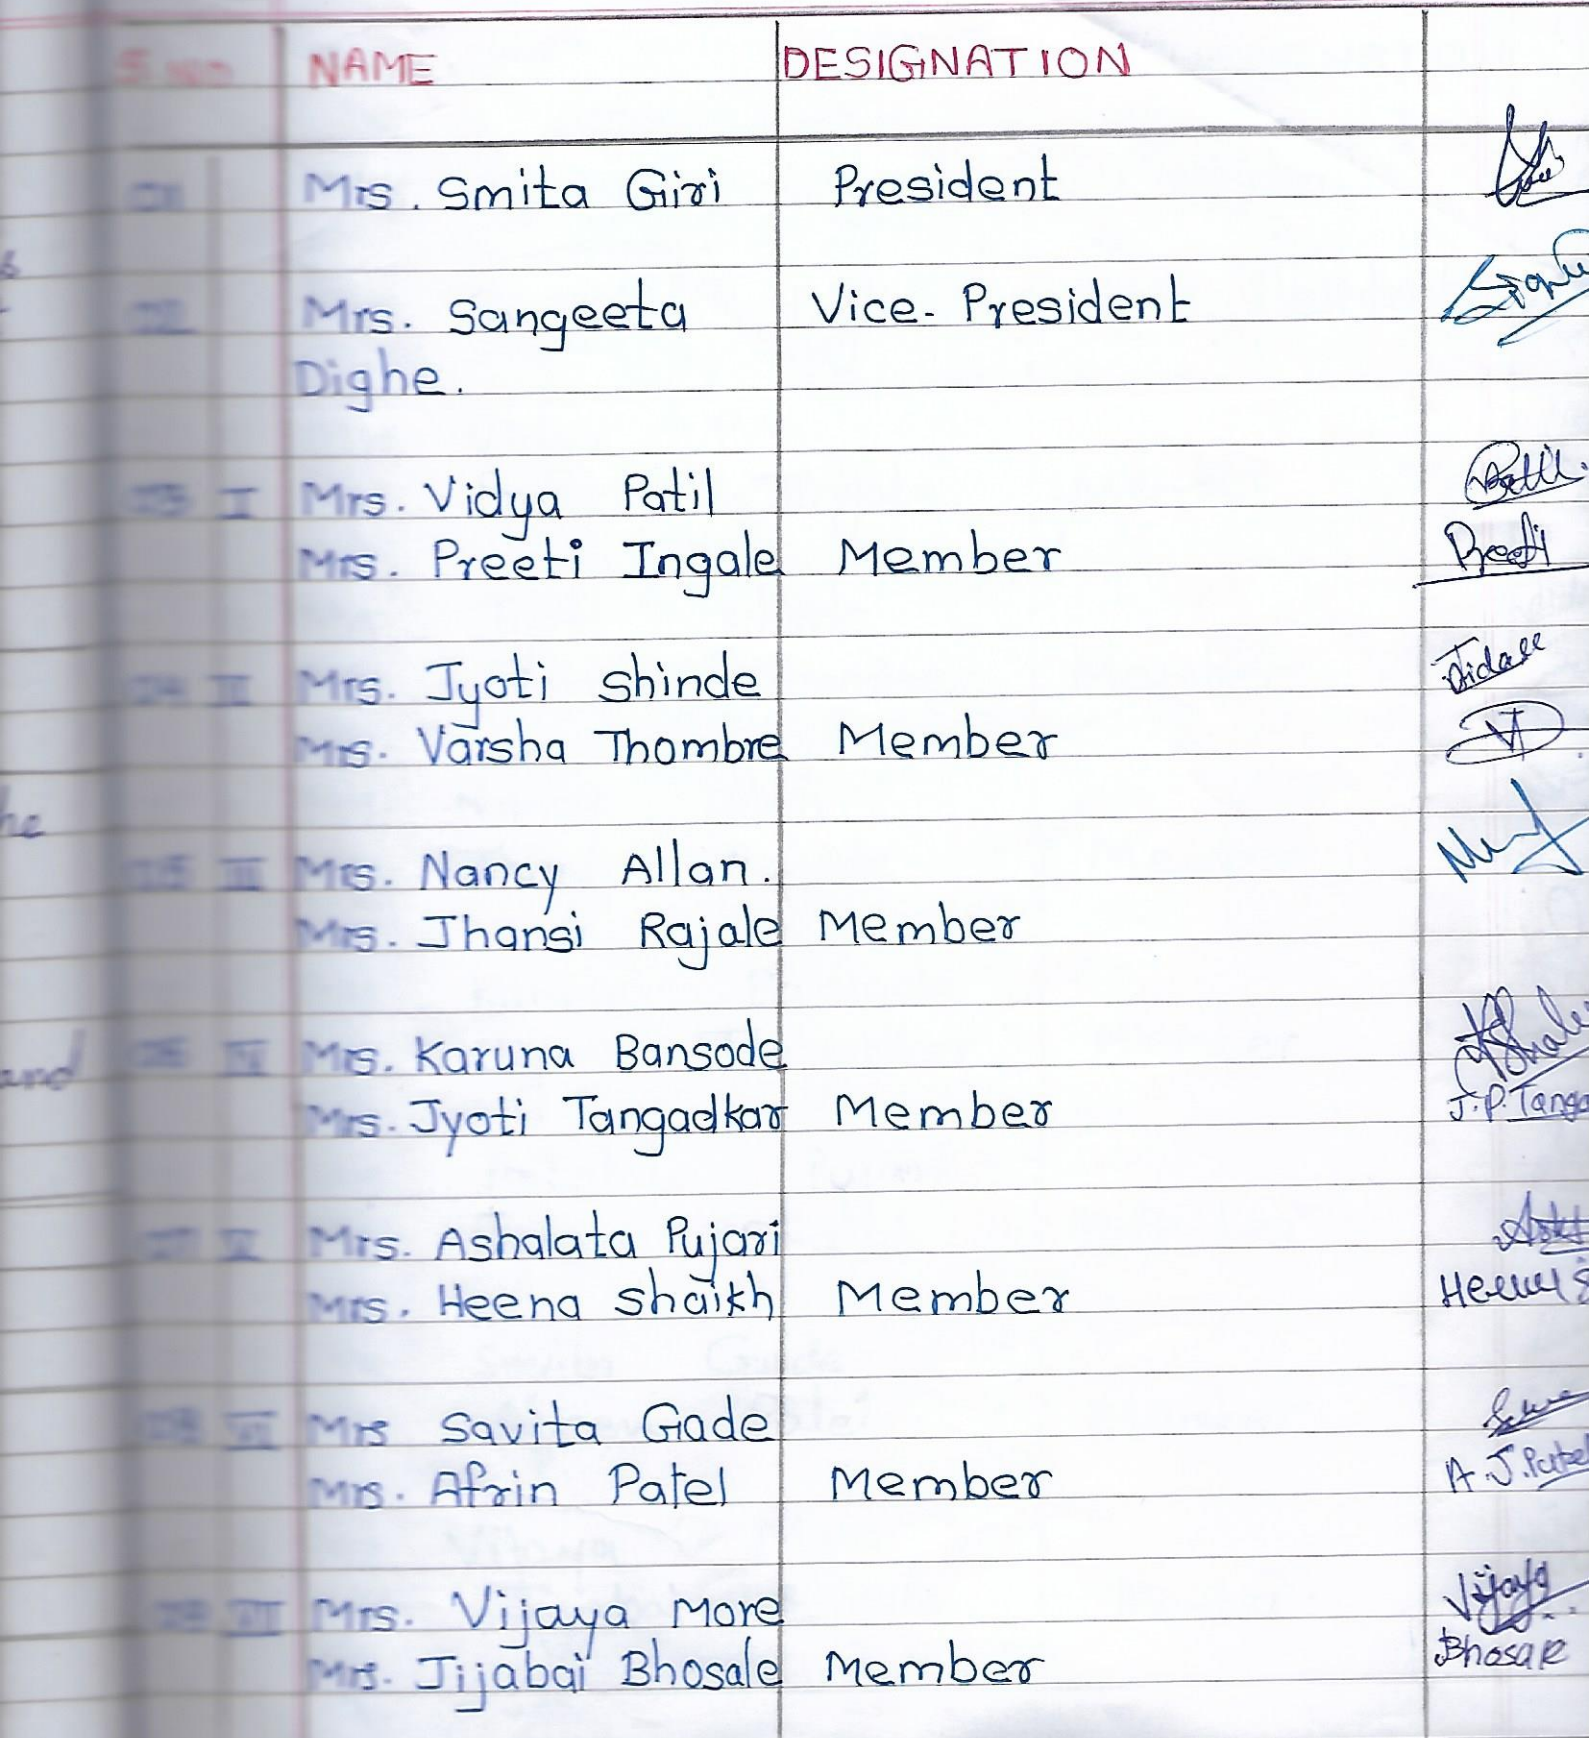 S.NO NAME DESIGNATION
01 Mrs. Smita Giri President
02 Mrs. Sangeeta Vice-President
Dighe.
03 I Mrs. Vidya Patil
Mrs. Preeti Ingale Member Preeti
04 II Mrs. Jyoti Shinde
Mrs. Varsha Thombre Member
he
05 III Mrs. Nancy Allan.
Mrs. Jhansi Rajale Member
and 06 IV Mrs. Karuna Bansode
Mrs. Jyoti Tangadkar Member J.P. Tanga
07 V Mrs. Ashalata Pujari
Mrs. Heena Shaikh Member
08 VI Mrs Savita Gade
Mrs. Afrin Patel Member A.J. Patel
09 VII Mrs. Vijaya More Vijaya
Mrs. Jijabai Bhosale Member Bhosale